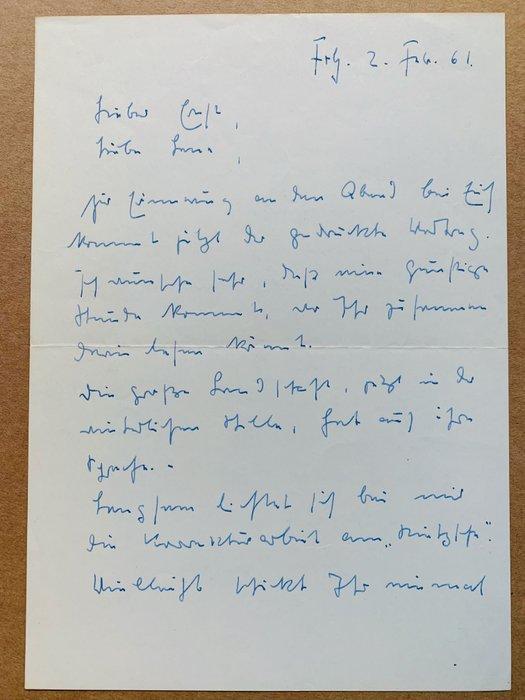 Frbg. 2. Feb. 61.
Lieber Ernst,
liebe Lena,
zur Erinnerung an den Abend bei Euch
kommt jetzt der gedruckte Vortrag.
Ich wünschte sehr, daß eine günstige
Stunde kommt, wo Ihr zusammen
darin lesen könnt.
Die große Landschaft, jetzt in der
winterlichen Stille, hat auch ihre
Sprache. -
Langsam lichtet sich bei mir
die Korrekturarbeit am „Nietzsche".
Vielleicht schickt Ihr einmal